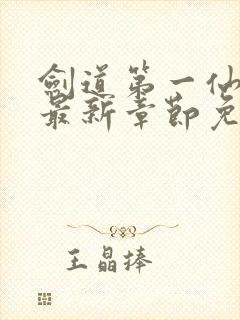 劍道第一仙
最新章節免
王晶捧